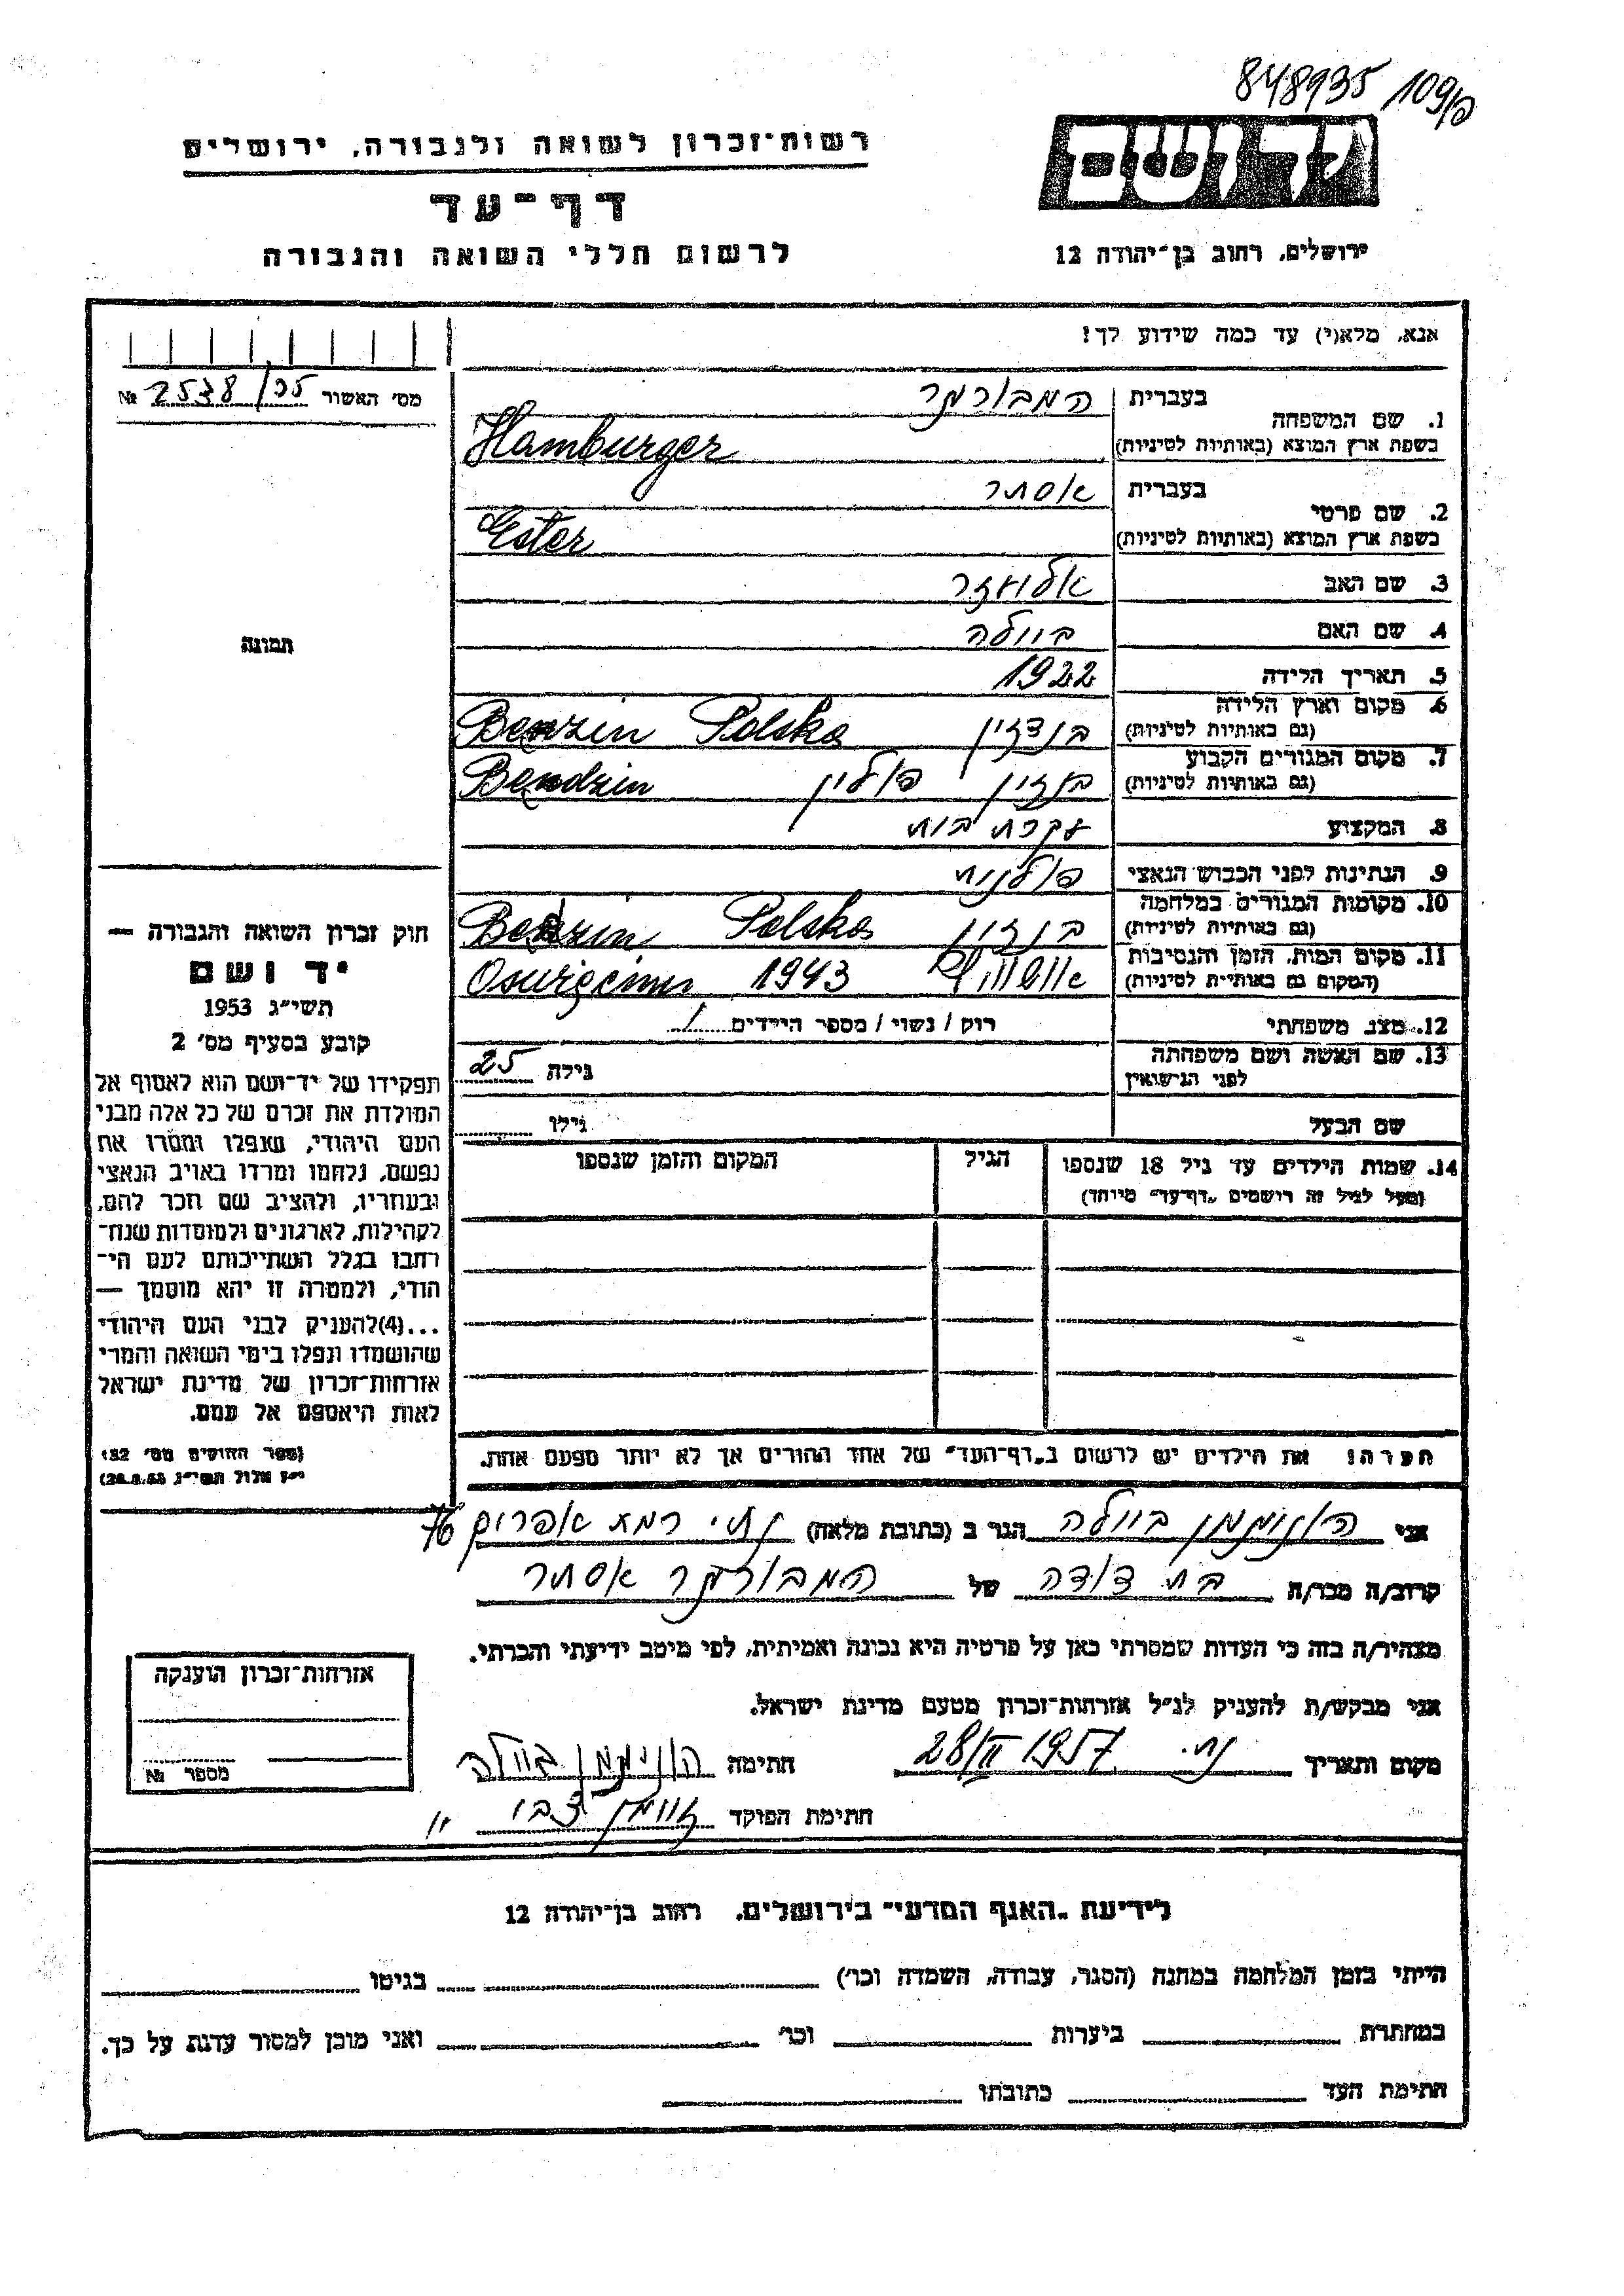 848935 109/פ
רשות־זכרון לשואה ולגבורה, ירושלים
דף־עד
לרשום חללי השואה והגבורה
יד ושם
ירושלים, רחוב בן־יהודה 12
אנא, מלא(י) עד כמה שידוע לך!
מס׳ האשור № 2538
1. שם המשפחה
בעברית המבורגר
בשפת ארץ המוצא (באותיות לטיניות) Hamburger
2. שם פרטי
בעברית אסתר
בשפת ארץ המוצא (באותיות לטיניות) Ester
3. שם האב
4. שם האם ביילה
5. תאריך הלידה 1922
6. מקום וארץ הלידה (גם באותיות לטיניות) בנדזין Benzin Polska
7. מקום המגורים הקבוע (גם באותיות לטיניות) בנדזין פולין Bendzin
8. המקצוע עקרת בית
9. הנתינות לפני הכבוש הנאצי פולנית
10. מקומות המגורים במלחמה (גם באותיות לטיניות) בנדזין Polska
11. מקום המות, הזמן והנסיבות (המקום גם באותיות לטיניות) 1943
12. מצב משפחתי רוק / נשוי / מספר הילדים
13. שם האשה ושם משפחתה לפני הנישואין גילה 25
שם הבעל גילו
14. שמות הילדים עד גיל 18 שנספו הגיל המקום והזמן שנספו
(מעל לגיל זה רושמים „דף־עד״ מיוחד)
תמונה
חוק זכרון השואה והגבורה —
יד ושם
תשי״ג 1953
קובע בסעיף מס׳ 2
תפקידו של יד־ושם הוא לאסוף אל
המולדת את זכרם של כל אלה מבני
העם היהודי, שנפלו ומסרו את
נפשם, נלחמו ומרדו באויב הנאצי
ובעוזריו, ולהציב שם וזכר להם,
לקהילות, לארגונים ולמוסדות שנח־
רבו בגלל השתייכותם לעם הי־
הודי, ולמטרה זו יהא מוסמך —
...(4)להעניק לבני העם היהודי
שהושמדו ונפלו בימי השואה והמרי
אזרחות־זכרון של מדינת ישראל
לאות היאספם אל עמם.
(ספר החוקים מס׳ 132
י״ז אלול תשי״ג 28.8.53)
הערה: את הילדים יש לרשום ב„דף־העד״ של אחד ההורים אך לא יותר מפעם אחת.
אני ביילה הגר ב (כתובת מלאה) רמת אפרים
קרוב/ה מכר/ה בת דודה של המבורגר אסתר
מצהיר/ה בזה כי העדות שמסרתי כאן על פרטיה היא נכונה ואמיתית, לפי מיטב ידיעתי והכרתי.
אני מבקש/ת להעניק לנ״ל אזרחות־זכרון מטעם מדינת ישראל.
מקום ותאריך 28/II 1957 חתימה ביילה
חתימת הפוקד
אזרחות־זכרון הוענקה
מספר №
לידיעת „האגף המדעי״ בירושלים, רחוב בן־יהודה 12
הייתי בזמן המלחמה במחנה (הסגר, עבודה, השמדה וכו׳) בגיטו
במחתרת ביערות וכו׳ ואני מוכן למסור עדות על כך.
חתימת העד כתובתו